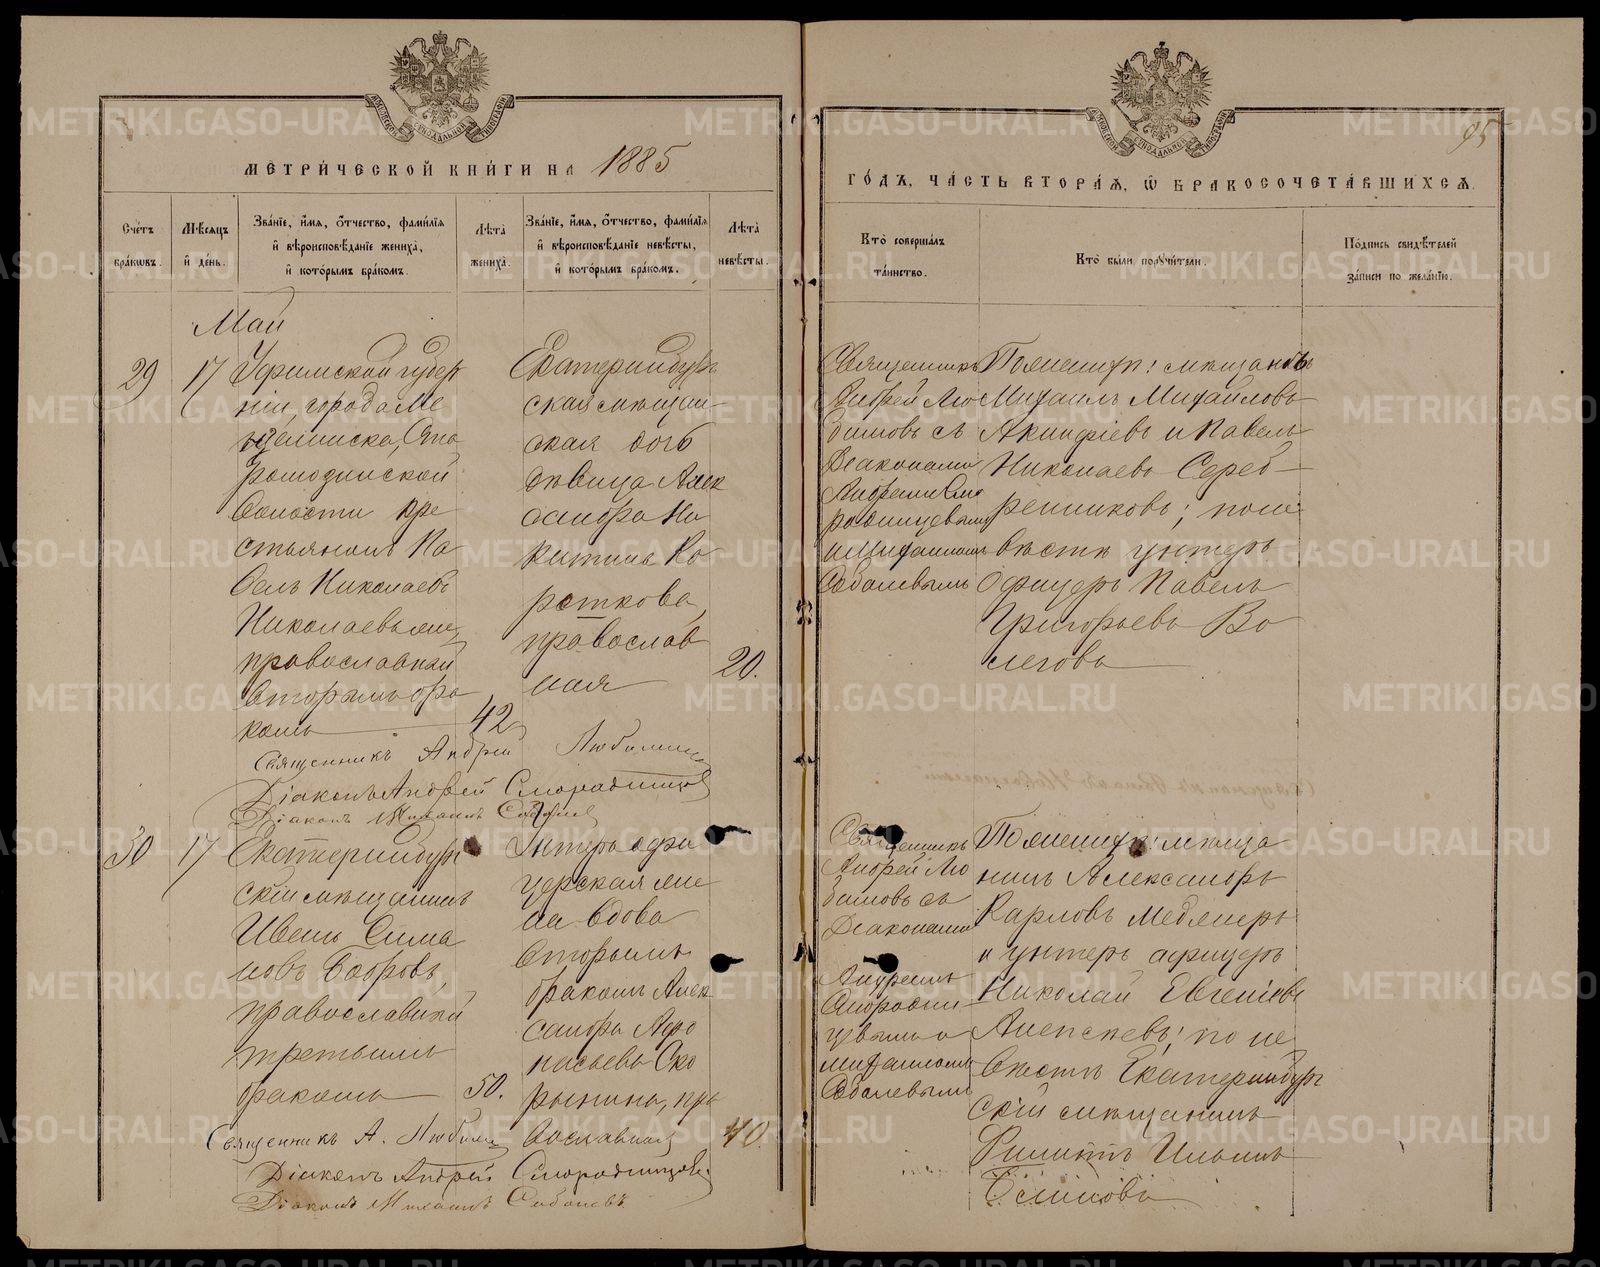 МЕТРИ́ЧЕСКОЙ КНИ́ГИ НА 1885
Сче́тъ бра́ковъ.
Мѣ́сяцъ и де́нь.
Зва́нїе, и́мя, ѻ́тчество, фами́лїя и вѣроисповѣ́данїе жениха̀, и кото́рымъ бра́комъ.
Лѣта̀ жениха̀.
Зва́нїе, и́мя, ѻ́тчество, фами́лїя и вѣроисповѣ́данїе невѣ́сты, и кото́рымъ бра́комъ.
Лѣта̀ невѣ́сты.
Май
29
17
Уфимской губер
ніи, города Ме
нзелинска,
Волости кре
стьянинъ Па
велъ Николаевъ
православный
вторымъ бра
комъ
42
Екатеринбург
ская мещан
ская дочь
дѣвица Алек
сандра Ни
китина Ко
роткова,
православ
ная
20.
Священникъ Андрей Любимовъ
Діаконъ Андрей Смородинцевъ
Діаконъ Михаилъ
30
17
Екатеринбург
скій мѣщанинъ
Иванъ Сима
новъ Бобровъ,
православный
третьимъ
бракомъ
50.
Унтеръ офи
церская же
на вдова
вторымъ
бракомъ Алек
сандра Афо
насьева Ско
рынина, пра
вославная
40.
Священникъ А. Любимовъ
Діаконъ Андрей Смородинцевъ
Діаконъ Михаилъ
95
ГО́ДЪ, ЧА́СТЬ ВТОРА́Я, Ѡ БРАКОСОЧЕТА́ВШИХСЯ.
Кто̀ соверша́лъ та́инство.
Кто̀ бы́ли порꙋчи́тели.
По́дпись свидѣ́телей за́писи по жела́нїю.
Священникъ
Андрей Лю
бимовъ съ
Діаконами
Андреемъ Смо
родинцевымъ
и Михаиломъ
По женихѣ: мѣщане
Михаилъ Михайловъ
Акинфіевъ и Павелъ
Николаевъ Сереб
ренниковъ; по не
вѣстѣ унтеръ
офицеръ Павелъ
Григорьевъ Во
леговъ
Священникъ
Андрей Лю
бимовъ съ
Діаконами
Андреемъ
Смородин
цевымъ и
Михаиломъ
По женихѣ: мѣща
нинъ Александръ
Карловъ Медлеръ
и унтеръ офицеръ
Николай Евгеніевъ
по не
вѣстѣ Екатеринбург
скій мѣщанинъ
Филиппъ Ильинъ
METRIKI.GASO-URAL.RU